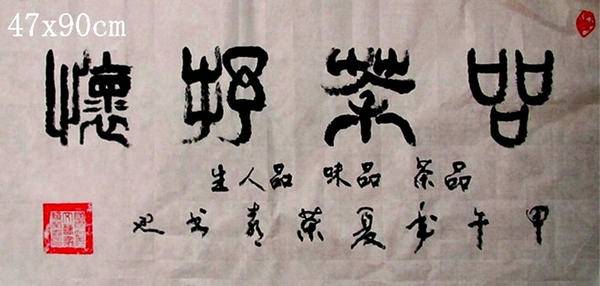 47x90cm
品茶抒懷
品茶 品味 品人生
甲午年夏荣